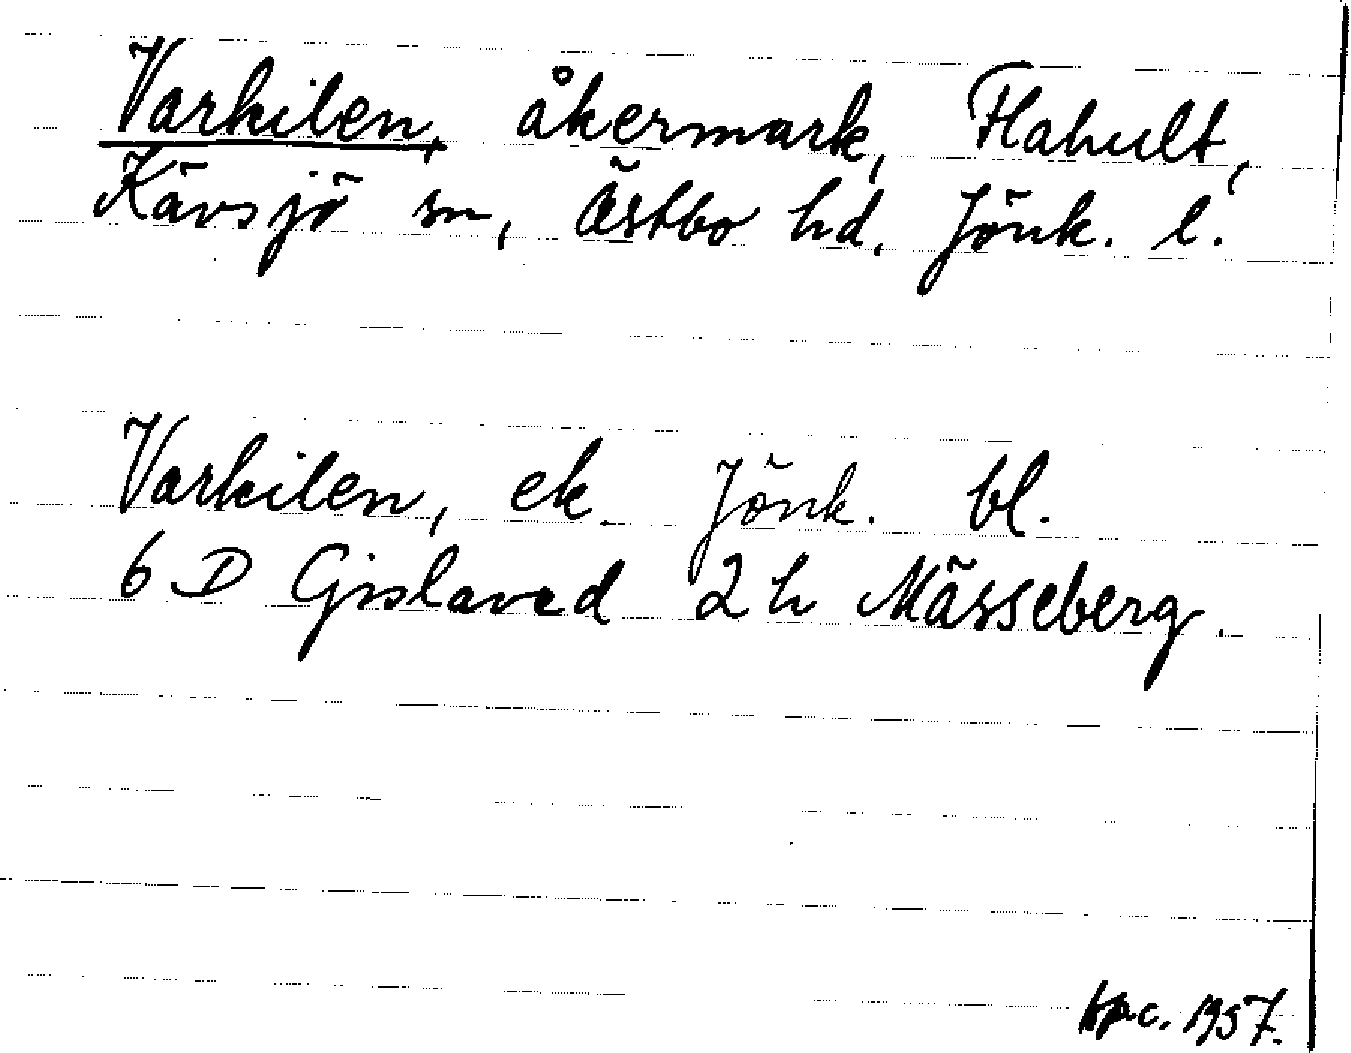 Varkilen, åkermark, Flahult,
Kävsjö sn, Östbo hd. Jönk. l.
Varkilen, ek. Jönk. bl.
6 D Gislaved 2 h Mässeberg.
1957.